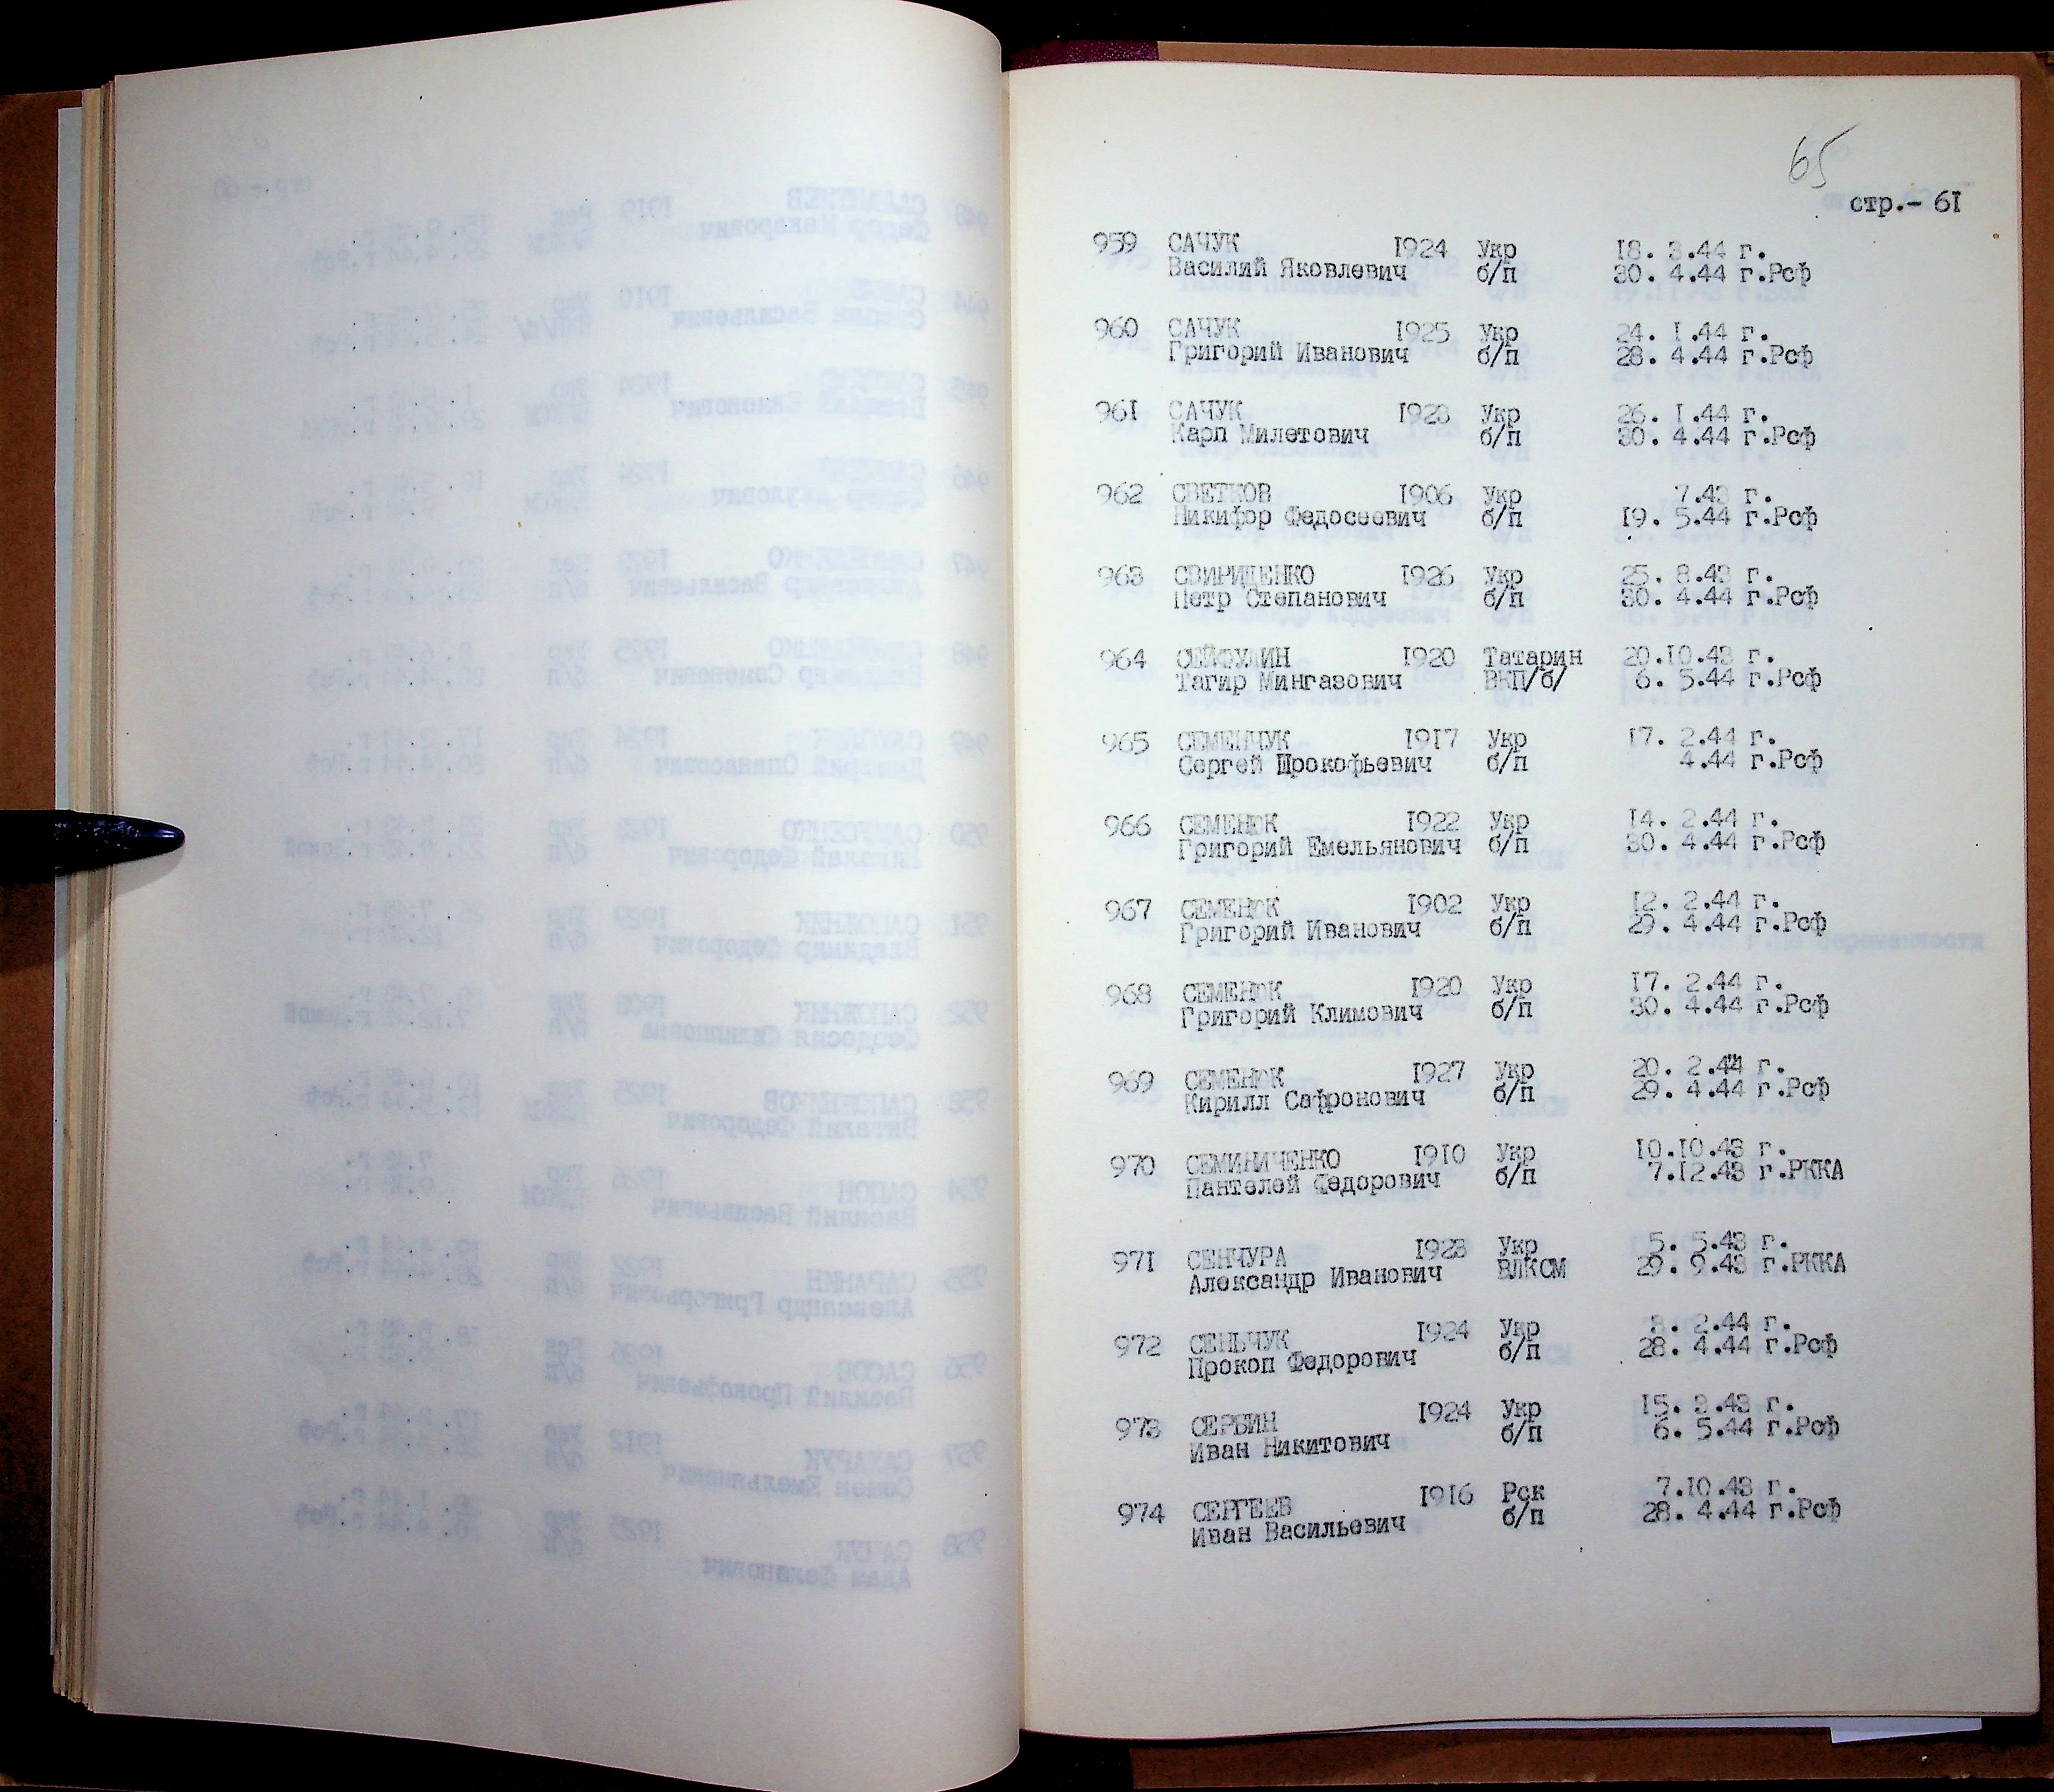 65
стр.- 61
959 САЧУК 1924 Укр 18. 3.44 г.
Василий Яковлевич б/п 30. 4.44 г.Рсф
960 САЧУК 1925 Укр 24. 1.44 г.
Григорий Иванович б/п 28. 4.44 г.Рсф
961 САЧУК 1923 Укр 26. 1.44 г.
Карп Милетович б/п 30. 4.44 г.Рсф
962 СВЕТКОВ 1906 Укр 7.43 г.
Никифор Федосеевич б/п 19. 5.44 г.Рсф
963 СВИРИДЕНКО 1926 Укр 25. 8.43 г.
Петр Степанович б/п 30. 4.44 г.Рсф
964 СЕЙФУЛИН 1920 Татарин 20.10.43 г.
Тагир Мингазович ВКП/б/ 6. 5.44 г.Рсф
965 СЕМЕНЧУК 1917 Укр 17. 2.44 г.
Сергей Прокофьевич б/п 4.44 г.Рсф
966 СЕМЕНЮК 1922 Укр 14. 2.44 г.
Григорий Емельянович б/п 30. 4.44 г.Рсф
967 СЕМЕНЮК 1902 Укр 12. 2.44 г.
Григорий Иванович б/п 29. 4.44 г.Рсф
968 СЕМЕНЮК 1920 Укр 17. 2.44 г.
Григорий Климович б/п 30. 4.44 г.Рсф
969 СЕМЕНЮК 1927 Укр 20. 2.44 г.
Кирилл Сафронович б/п 29. 4.44 г.Рсф
970 СЕМИНИЧЕНКО 1910 Укр 10.10.43 г.
Пантелей Федорович б/п 7.12.43 г.РККА
971 СЕНЧУРА 1923 Укр 5. 5.43 г.
Александр Иванович ВЛКСМ 29. 9.43 г.РККА
972 СЕНЬЧУК 1924 Укр 2.44 г.
Прокоп Федорович б/п 28. 4.44 г.Рсф
973 СЕРБИН 1924 Укр 15. 3.43 г.
Иван Никитович б/п 6. 5.44 г.Рсф
974 СЕРГЕЕВ 1916 Рск 7.10.43 г.
Иван Васильевич б/п 28. 4.44 г.Рсф